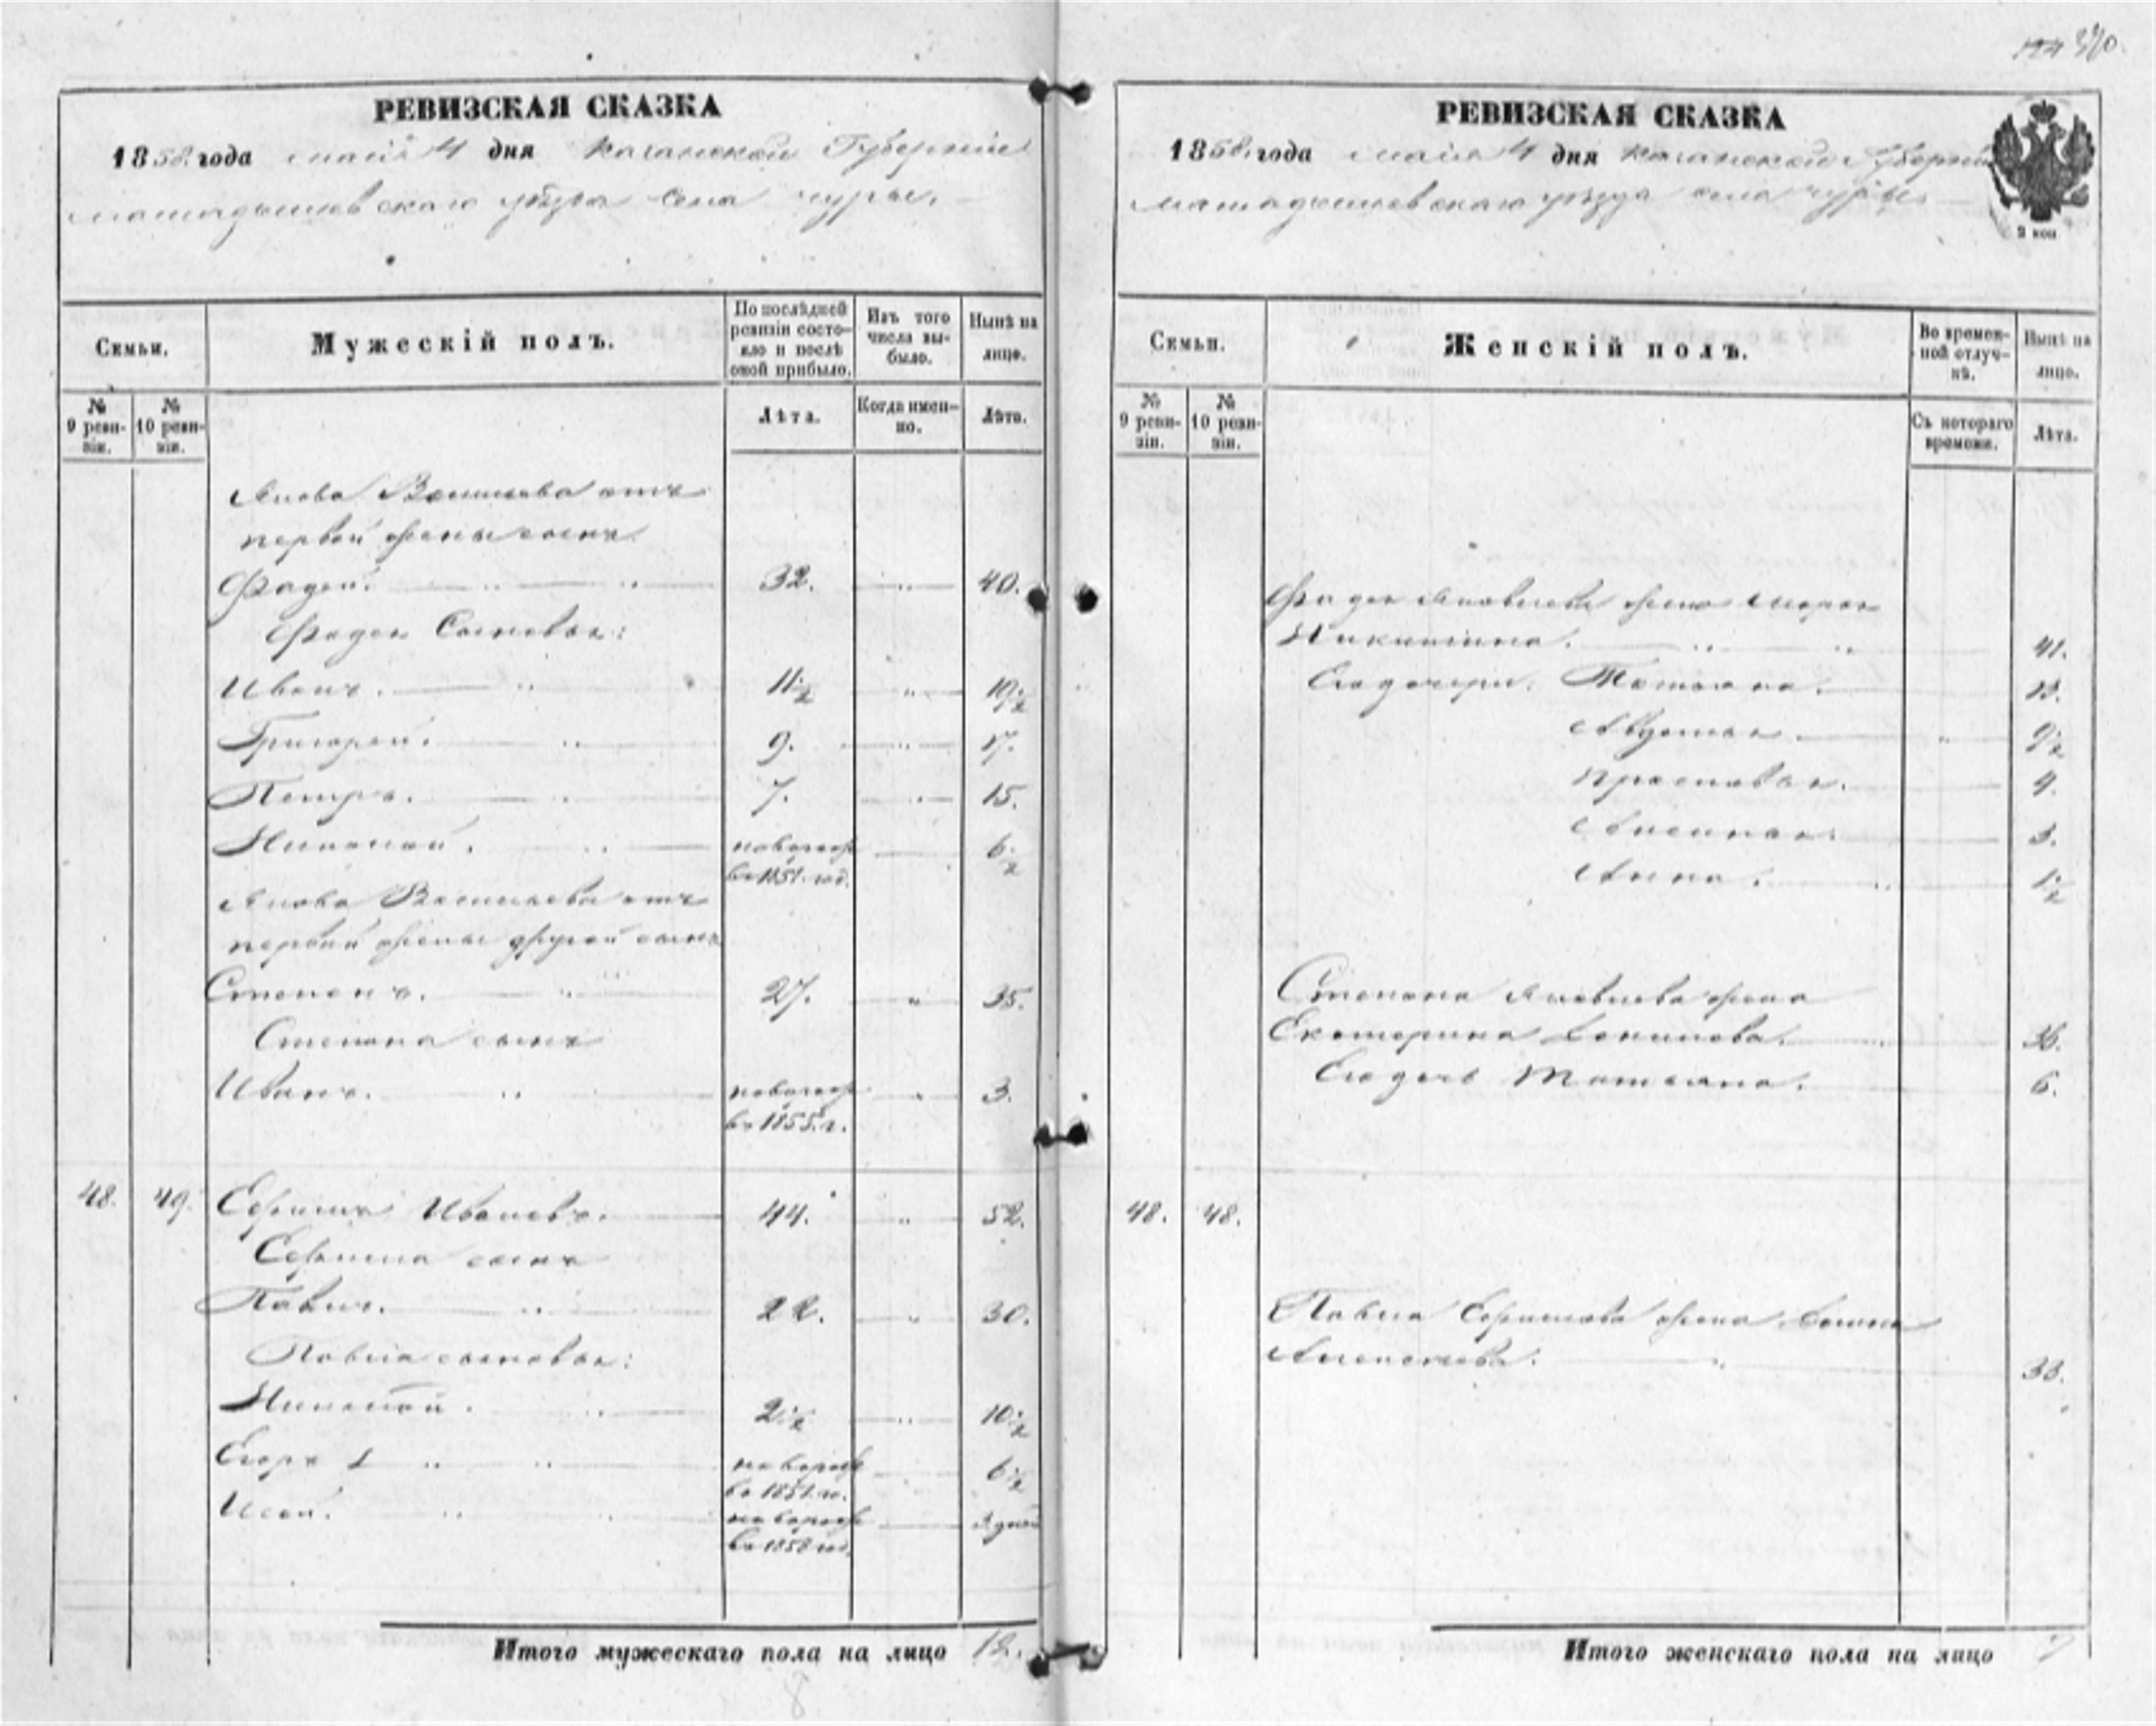 370.
РЕВИЗСКАЯ СКАЗКА
1858. года маія 4 дня Казанской Губерніи
мамадышевскаго уѣзда села чуры.
Семьи.
Мужескій полъ.
По послѣдней ревизіи состояло и послѣ оной прибыло.
Изъ того числа выбыло.
Нынѣ на лицо.
№ 9 ревизіи.
№ 10 ревизіи.
Лѣта.
Когда именно.
Лѣта.
Якова Васильева отъ
первой жены сынъ
Фадей. 32. 40.
Фадея Сыновья:
Иванъ. 11½ 19½
Григорей. 9. 17.
Петръ. 7. 15.
Николай. новорож 6½
въ 1851. год.
Якова Васильева отъ
первой жены другой сынъ
Степанъ. 27. 35.
Степана сынъ
Иванъ. новорож 3.
въ 1855. г.
48. 49. Ефимъ Ивановъ. 44. 52.
Ефима сынъ
Павелъ. 22. 30.
Павла сыновья:
Николай. 2½ 10½
Егоръ новорож 6½
въ 1851. го.
Исай. новорож дней
въ 1858 год.
Итого мужескаго пола на лицо 12.
РЕВИЗСКАЯ СКАЗКА
1858. года маія 4 дня Казанской Губерніи
мамадышевскаго уѣзда села чуры
2 коп
Семьи.
Женскій полъ.
Во временной отлучкѣ.
Нынѣ на лицо.
№ 9 ревизіи.
№ 10 ревизіи.
Съ котораго времени.
Лѣта.
Фадея Яковлева жена Марья
Никитина. 41.
Его дочери: Татьяна. 13.
Авдотья. 9½
Прасковья. 4.
3.
Анна. 1½
Степана Яковлева жена
Екатерина Данилова. 36.
Его дочь Татьяна. 6.
48. 48.
Павла Ефимова жена
Алексѣева. 33.
Итого женскаго пола на лицо